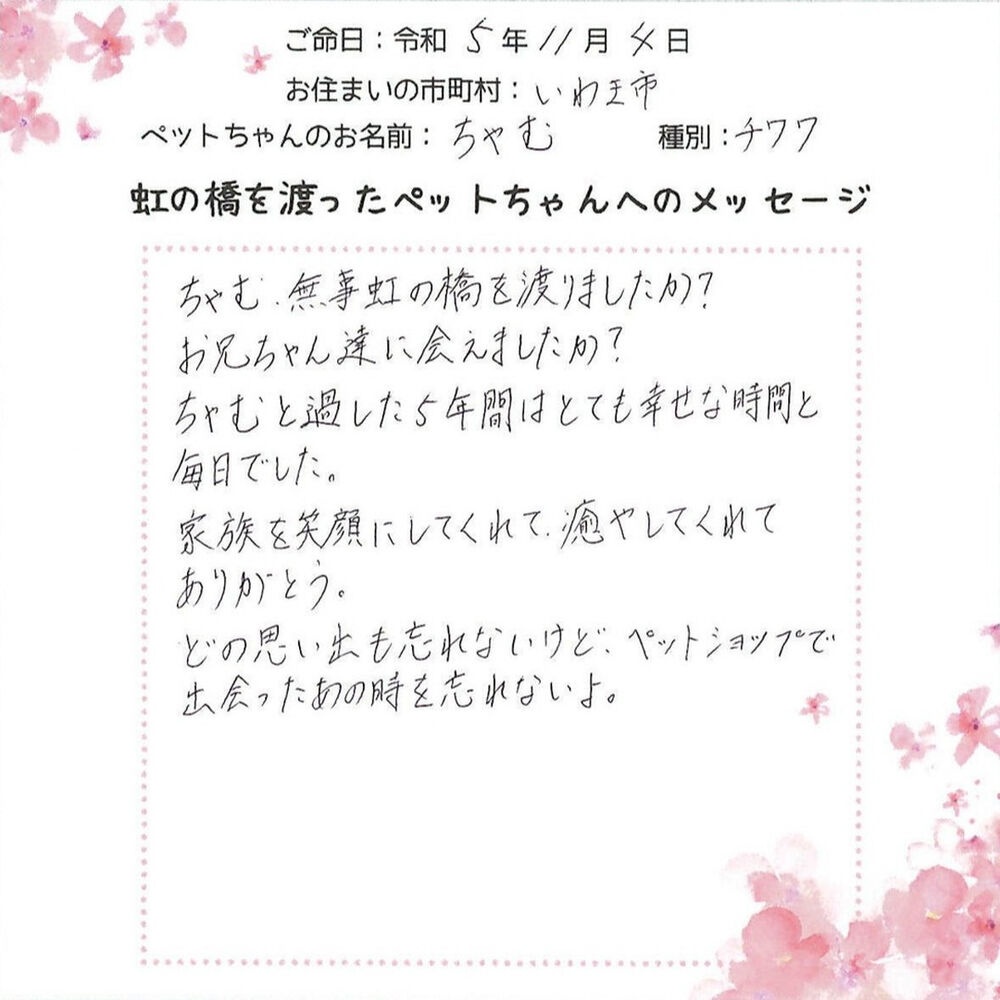 ご命日：令和 5年 11月 4日
お住まいの市町村：いわき市
ペットちゃんのお名前：ちゃむ 種別：チワワ
虹の橋を渡ったペットちゃんへのメッセージ
ちゃむ、無事虹の橋を渡りましたか？
お兄ちゃん達に会えましたか？
ちゃむと過した5年間はとても幸せな時間と
毎日でした。
家族を笑顔にしてくれて、癒やしてくれて
ありがとう。
どの思い出も忘れないけど、ペットショップで
出会ったあの時を忘れないよ。